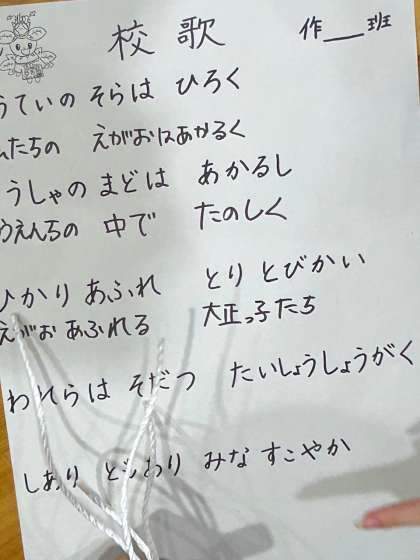 校歌
作＿＿班
うていの そらは ひろく
たちの えがおはあかるく
うしゃの まどは あかるし
うえんちの 中で たのしく
ひかり あふれ とり とびかい
えがお あふれる 大正っ子たち
われらは そだつ たいしょうしょうがく
しあり みな すこやか